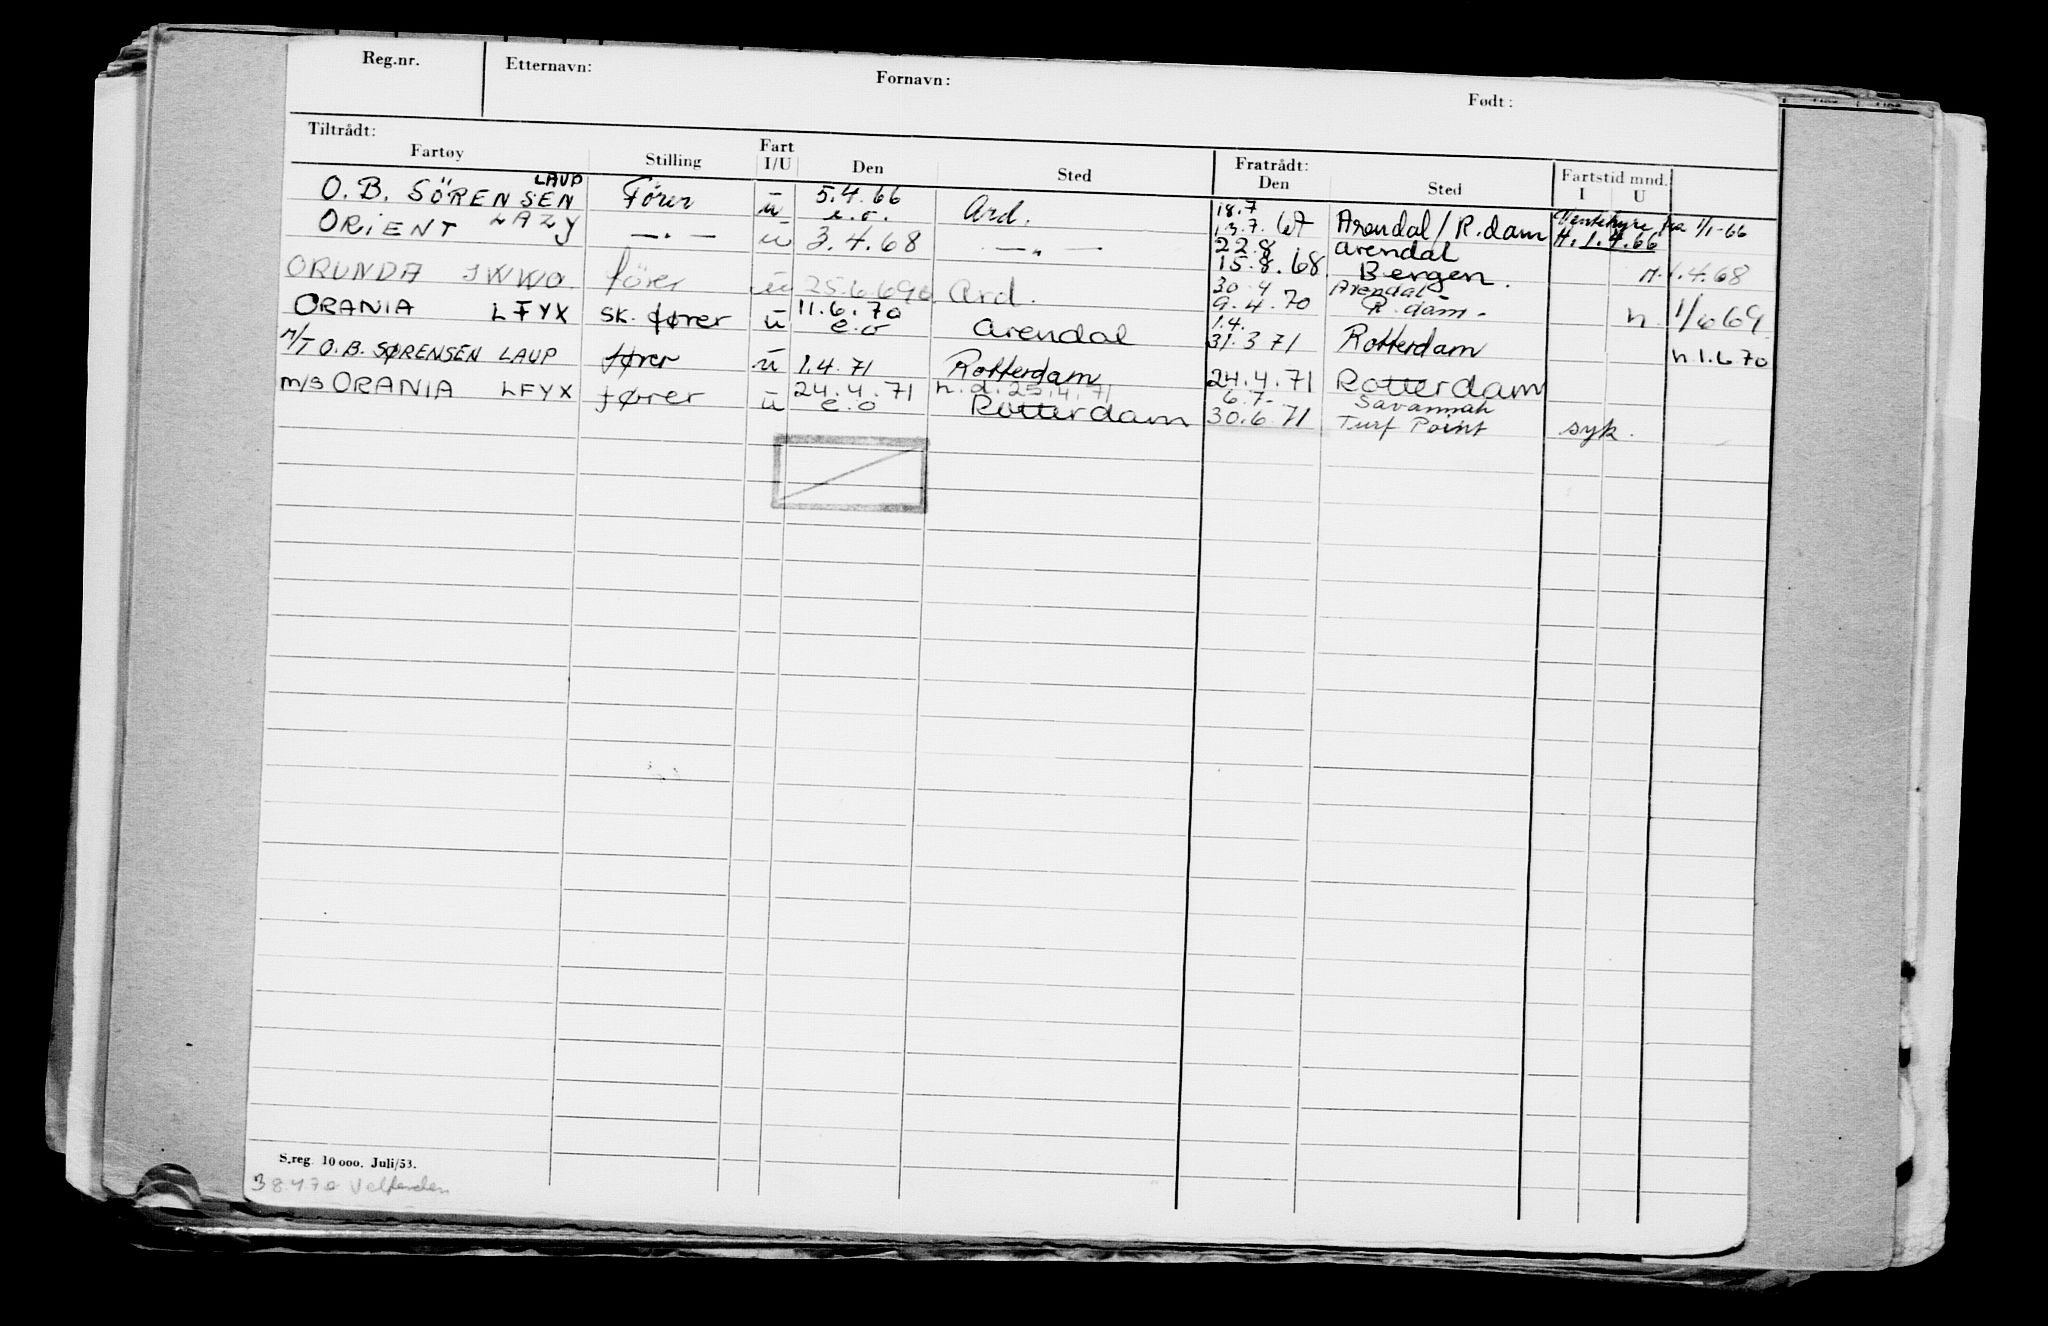 Reg.nr. Etternavn: Fornavn: Født:
Tiltrådt: Fratrådt: Fartstid mnd.
Fartøy Stilling Fart I/U Den Sted Den Sted I U
O. B. SÖRENSEN LAUP Förer u 5.4.66 e.o. Ard. 18.7 13.7.67 Arendal / R.dam Ventehyre fra 1/1-66 H. 1.4.66
ORIENT LAZY —"— u 3.4.68 —"— 22.8 15.8.68. Arendal Bergen. H. 1.4.68
ORUNDA JWWO förer u 25.6.69 Ard. 30.4 9.4.70 Arendal R.dam. h. 1/6 69
ORANIA LFYX SK. fører u 11.6.70 e.o Arendal 1.4. 31.3 71 Rotterdam h.1.6 70
M/T O.B. SØRENSEN LAUP fører u 1.4.71 Rotterdam 24.4.71 Rotterdam
M/S ORANIA LFYX fører u 24.4.71 e.o h.d. 25.4.71 Rotterdam 6.7- 30.6.71 Savannah Turf Point syk.
S.reg. 10 000. Juli/53.
38470